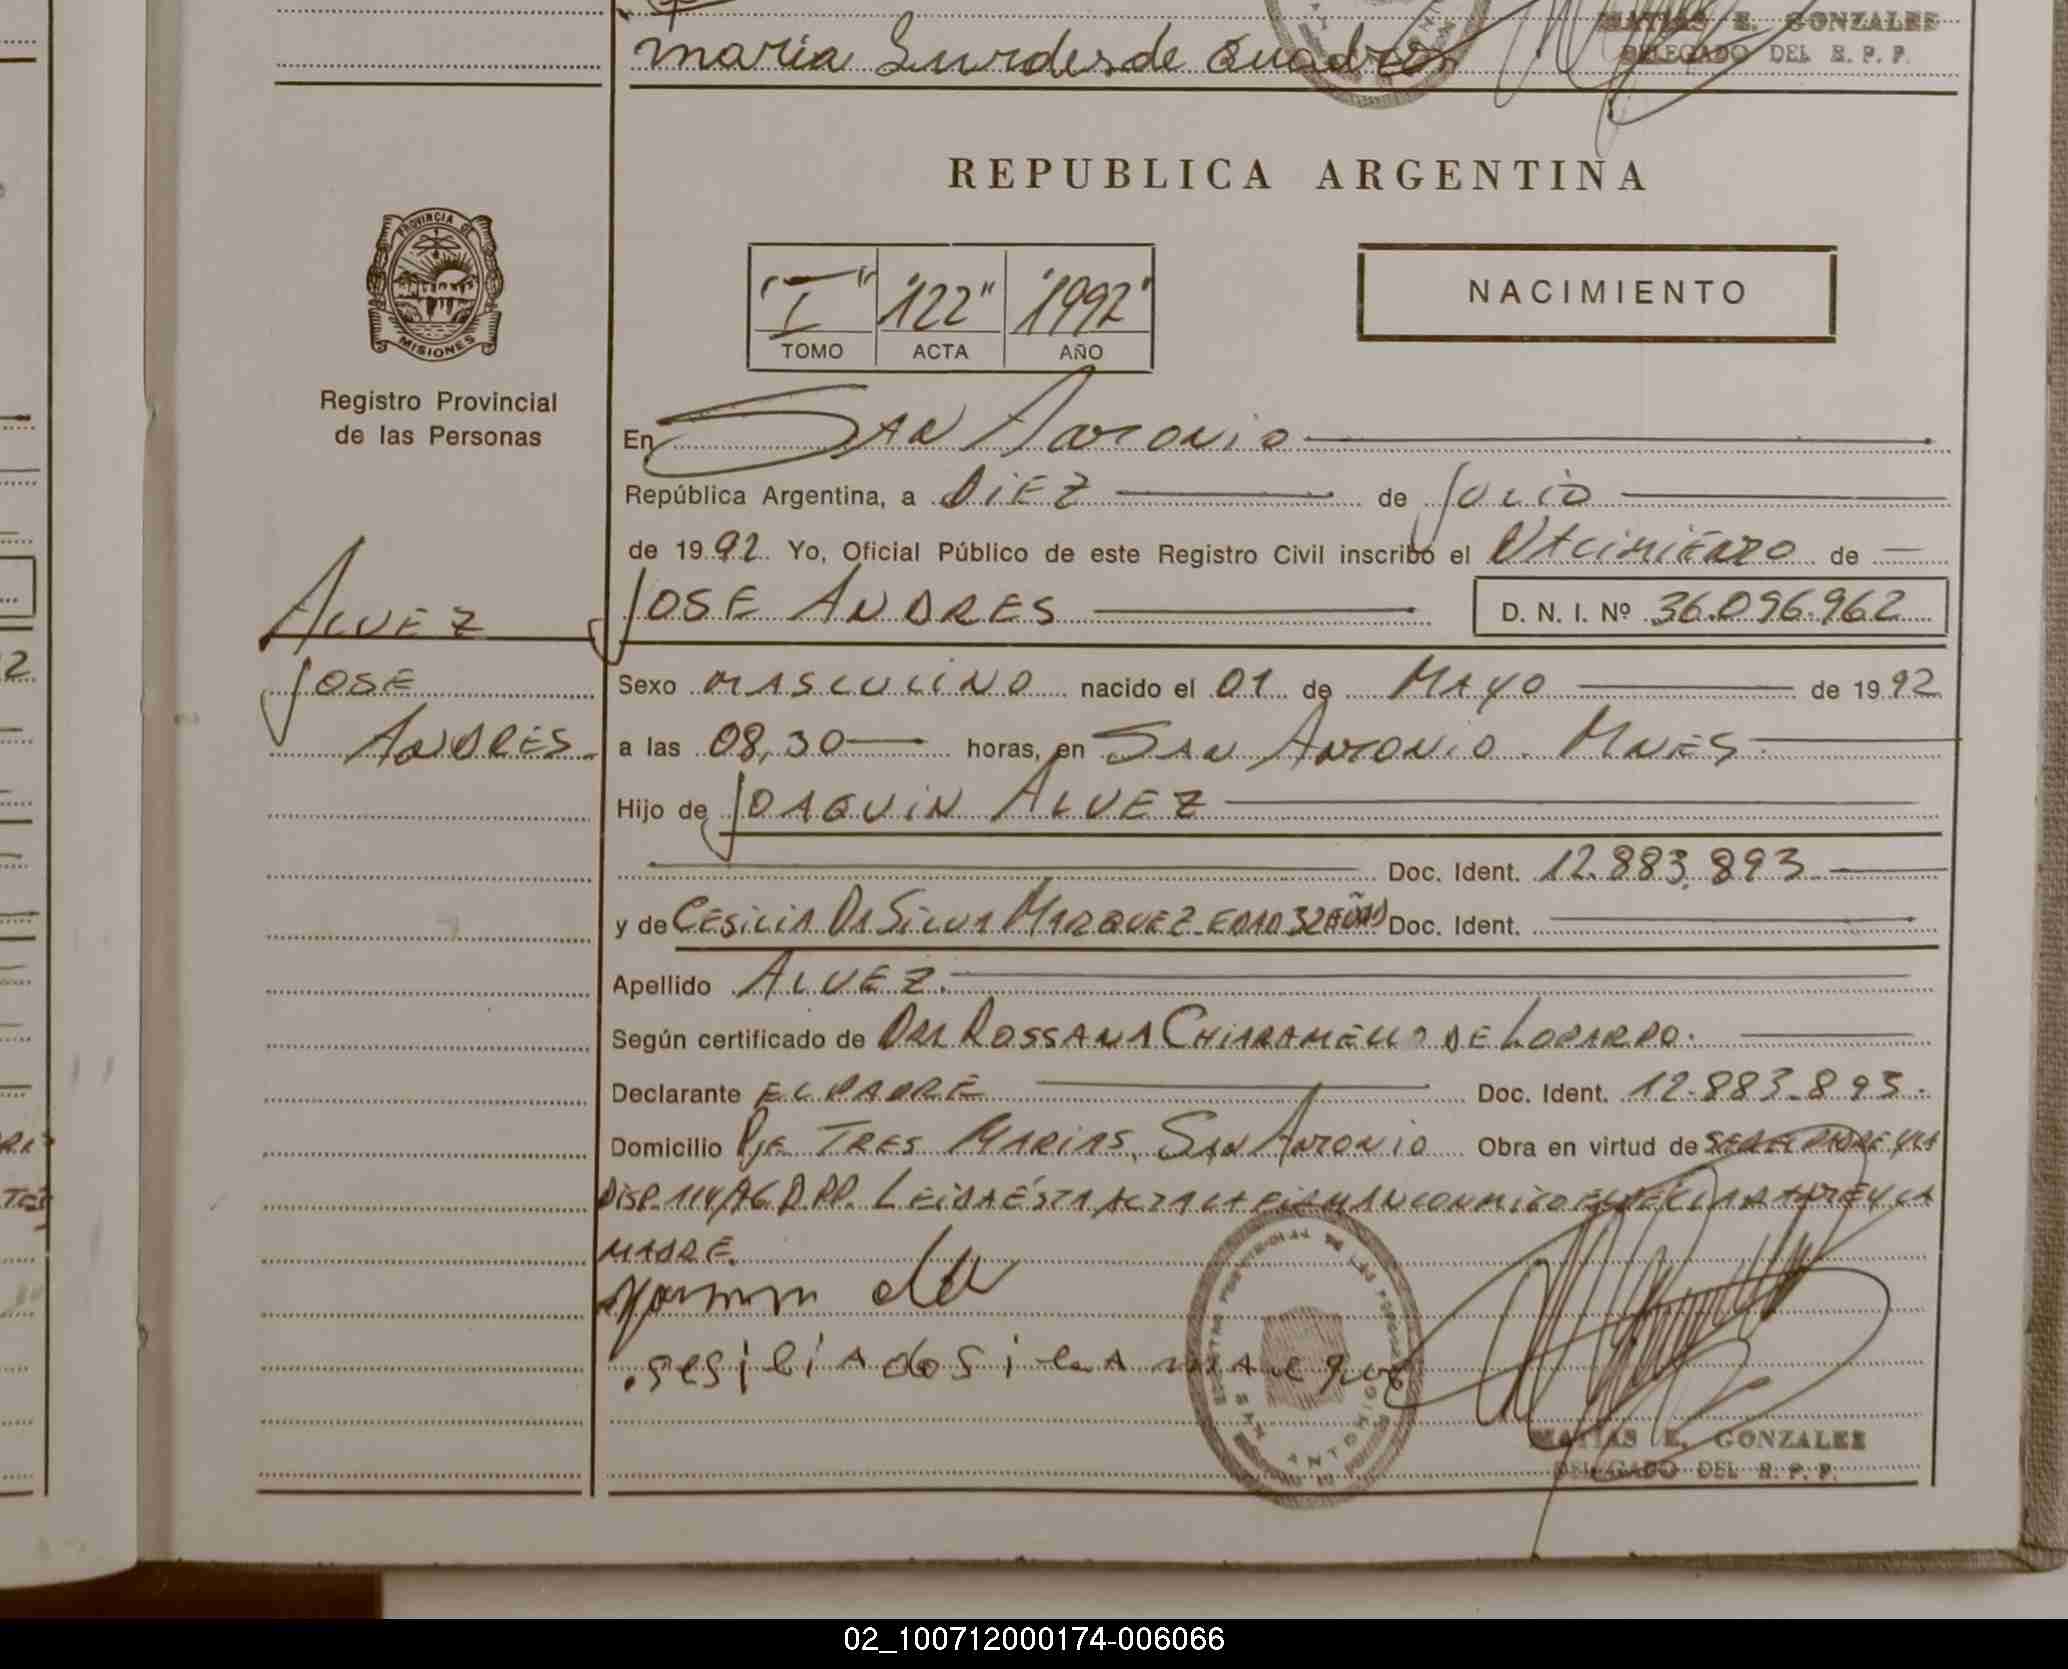 maria Lurdes de Quadros
MATIAS E. GONZALEZ
DELEGADO DEL R. P. P.
REPUBLICA ARGENTINA
PROVINCIA DE
MISIONES
"I" "122" "1992"
TOMO ACTA AÑO
NACIMIENTO
Registro Provincial
de las Personas
En SAN ANTONIO
República Argentina, a DIEZ de JULIO
de 1992 Yo, Oficial Público de este Registro Civil inscribo el NACIMIENTO de
JOSE ANDRES D. N. I. Nº 36.096.962
ALVEZ
JOSE
ANDRES
Sexo MASCULINO nacido el 01 de MAYO de 1992
a las 08,30 horas, en SAN ANTONIO. MNES
Hijo de JOAQUIN ALVEZ
Doc. Ident. 12.883.893
y de CESILIA DA SILVA MARQUEZ EDAD 32 AÑOS) Doc. Ident.
Apellido ALVEZ.
Según certificado de DRA ROSSANA CHIARAMELLO DE LODARDO.
Declarante EL PADRE Doc. Ident. 12.883.893.
Domicilio Pje TRES MARIAS, SAN ANTONIO Obra en virtud de SER EL PADRE Y LA
DISP. 114/76 R.P.P. LEIDA ÉSTA ACTA LA FIRMAN CONMIGO EL DECLARANTE Y LA
MADRE.
sesilia da silva marques
SAN ANTONIO
MATIAS E. GONZALEZ
DELEGADO DEL R. P. P.
02_100712000174-006066